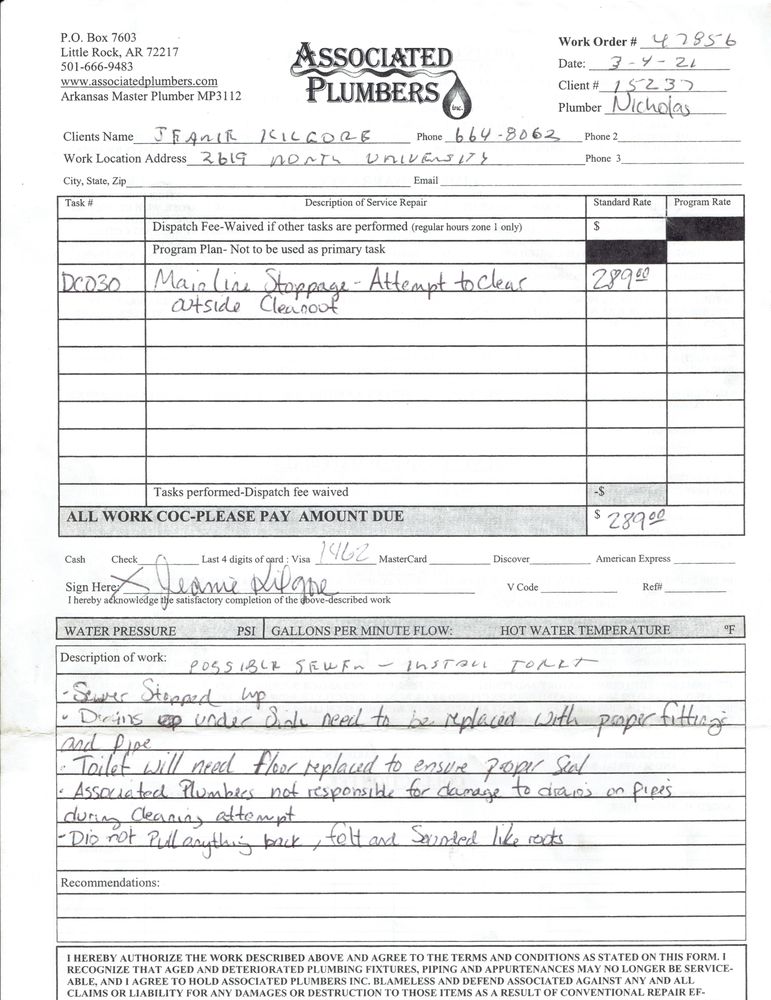 P.O. Box 7603
Little Rock, AR 72217
501-666-9483
www.associatedplumbers.com
Arkansas Master Plumber MP3112
ASSOCIATED
PLUMBERS
Inc.
Work Order # 47856
Date: 3-4-21
Client # 15237
Plumber Nicholas
Clients Name JEANIE KILGORE Phone 664-8062 Phone 2
Work Location Address 2619 NORTH UNIVERSITY Phone 3
City, State, Zip Email
Task # Description of Service Repair Standard Rate Program Rate
Dispatch Fee-Waived if other tasks are performed (regular hours zone 1 only) $
Program Plan- Not to be used as primary task
DC030 Main line Stoppage - Attempt to Clear 289.00
outside Cleanout
Tasks performed-Dispatch fee waived -$
ALL WORK COC-PLEASE PAY AMOUNT DUE $ 289.00
Cash Check Last 4 digits of card : Visa 1462 MasterCard Discover American Express
Sign Here: X Jeanie Kilgore V Code Ref#
I hereby acknowledge the satisfactory completion of the above-described work
WATER PRESSURE PSI GALLONS PER MINUTE FLOW: HOT WATER TEMPERATURE ºF
Description of work: POSSIBLE SEWER - INSTALL TOILET
- Sewer Stopped up
• Drains under Sink need to be replaced with proper fittings
and Pipe
· Toilet will need floor replaced to ensure proper Seal
· Associated Plumbers not responsible for damage to drains or pipes
during Cleaning attempt
- Did not Pull anything back, felt and Sounded like roots
Recommendations:
I HEREBY AUTHORIZE THE WORK DESCRIBED ABOVE AND AGREE TO THE TERMS AND CONDITIONS AS STATED ON THIS FORM. I
RECOGNIZE THAT AGED AND DETERIORATED PLUMBING FIXTURES, PIPING AND APPURTENANCES MAY NO LONGER BE SERVICE-
ABLE, AND I AGREE TO HOLD ASSOCIATED PLUMBERS INC. BLAMELESS AND DEFEND ASSOCIATED AGAINST ANY AND ALL
CLAIMS OR LIABILITY FOR ANY DAMAGES OR DESTRUCTION TO THOSE ITEMS AS A RESULT OF CONVENTIONAL REPAIR EF-